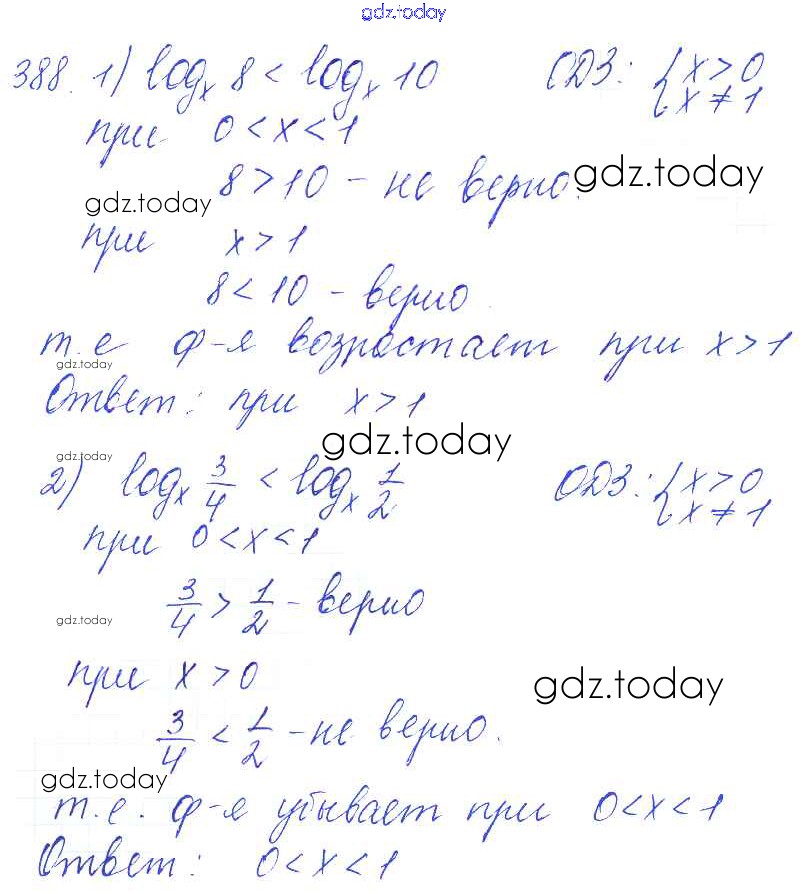 gdz.today
388. 1) log_x 8 < log_x 10 ОДЗ: { x > 0
x ≠ 1
при 0 < x < 1
8 > 10 - не верно. gdz.today
gdz.today
при x > 1
8 < 10 - верно.
т.е ф-я возрастает при x > 1
gdz.today
Ответ: при x > 1
gdz.today
gdz.today
2) log_x 3/4 < log_x 1/2 ОДЗ: { x > 0
x ≠ 1
при 0 < x < 1
3/4 > 1/2 - верно
gdz.today
при x > 0
gdz.today
3/4 < 1/2 - не верно.
gdz.today
т.е. ф-я убывает при 0 < x < 1
Ответ: 0 < x < 1